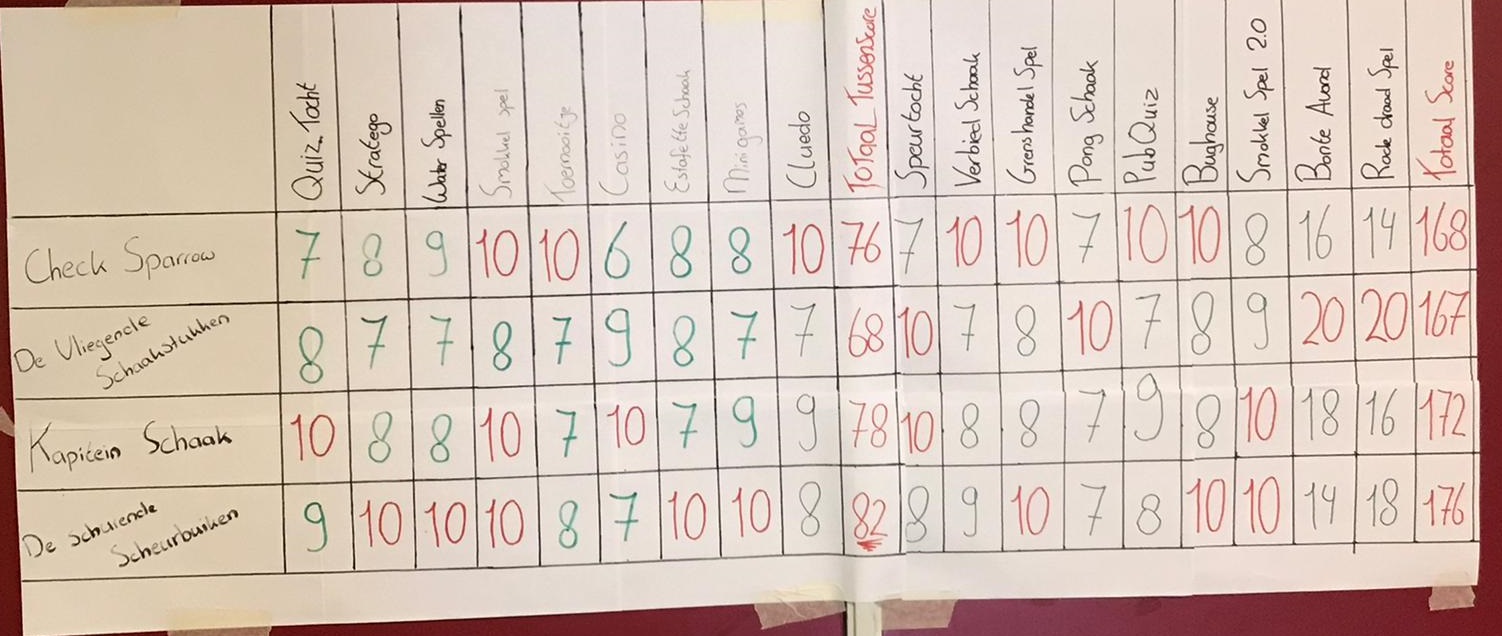 Quiz Tocht Stratego Water Spellen Smokkel spel Toernooitje Casino Estafette Schaak Minigames Cluedo Totaal Tussenscore Speurtocht Verbied Schaak Grenshandel Spel Pong Schaak PubQuiz Bughouse Smokkel Spel 2.0 Bonte Avond Rode draad Spel Totaal Score
Check Sparrow 7 8 9 10 10 6 8 8 10 76 7 10 10 7 10 10 8 16 14 168
De Vliegende
Schaakstukken 8 7 7 8 7 9 8 7 7 68 10 7 8 10 7 8 9 20 20 167
Kapitein Schaak 10 8 8 10 7 10 7 9 9 78 10 8 8 7 9 8 10 18 16 172
De schuiende
Scheurbuiken 9 10 10 10 8 7 10 10 8 82 8 9 10 7 8 10 10 14 18 176